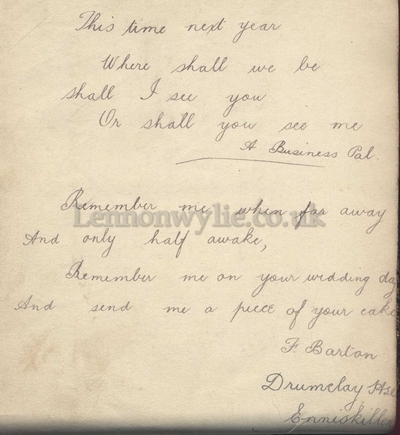 This time next year
Where shall we be
shall I see you
Or shall you see me
A Business Pal.
Remember me when far away
Lennonwylie.co.uk
And only half awake,
Remember me on your wedding day
And send me a piece of your cake
F Barton
Drumclay Hse
Enniskillen